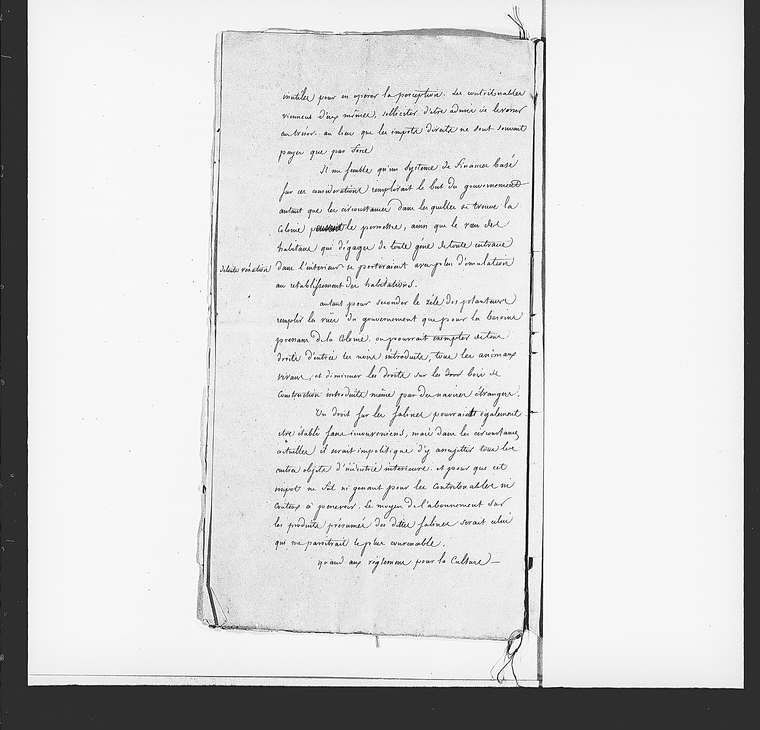 inutiles pour en operer la perception. Les contribuables
viennent d'eux mêmes, solliciter d'être admis à le verser
au tresor. au lieu que les impots directs ne sont souvent
payés que par force
Il me semble qu'un Systeme de Finances basé
sur ces considerations remplirait le but du gouvernement
autant que les circonstances dans lesquelles se trouve la
Colonie le permettre, ainsi que le vœu des
habitans qui dégagés de toute gêne de toute entrave
de toute vexation
dans l'interieur se porteraient avec plus d'emulation
au retablissement des habitations.
autant pour seconder le zele des planteurs
remplir les vues du gouvernement que pour les besoins
pressans de la Colonie, on pourrait exempter de tous
droits d'entrée les noirs introduits, tous les animaux
vivans, et diminuer les droits sur les bois de
Construction introduits même par des navires étrangers.
Un droit sur les salines pourrait également
etre établi sans inconveniens, mais dans les circonstances
actuelles il serait impolitique d'y assujettir tous les
autres objets d'industrie interieure. et pour que cet
impot ne fut ni genant pour les Contribuables ni
Couteux à percevoir. le moyen de l'abonnement sur
les produits présumés des dittes salines serait celui
qui me paroitrait le plus convenable.
quand aux réglemens pour la Culture